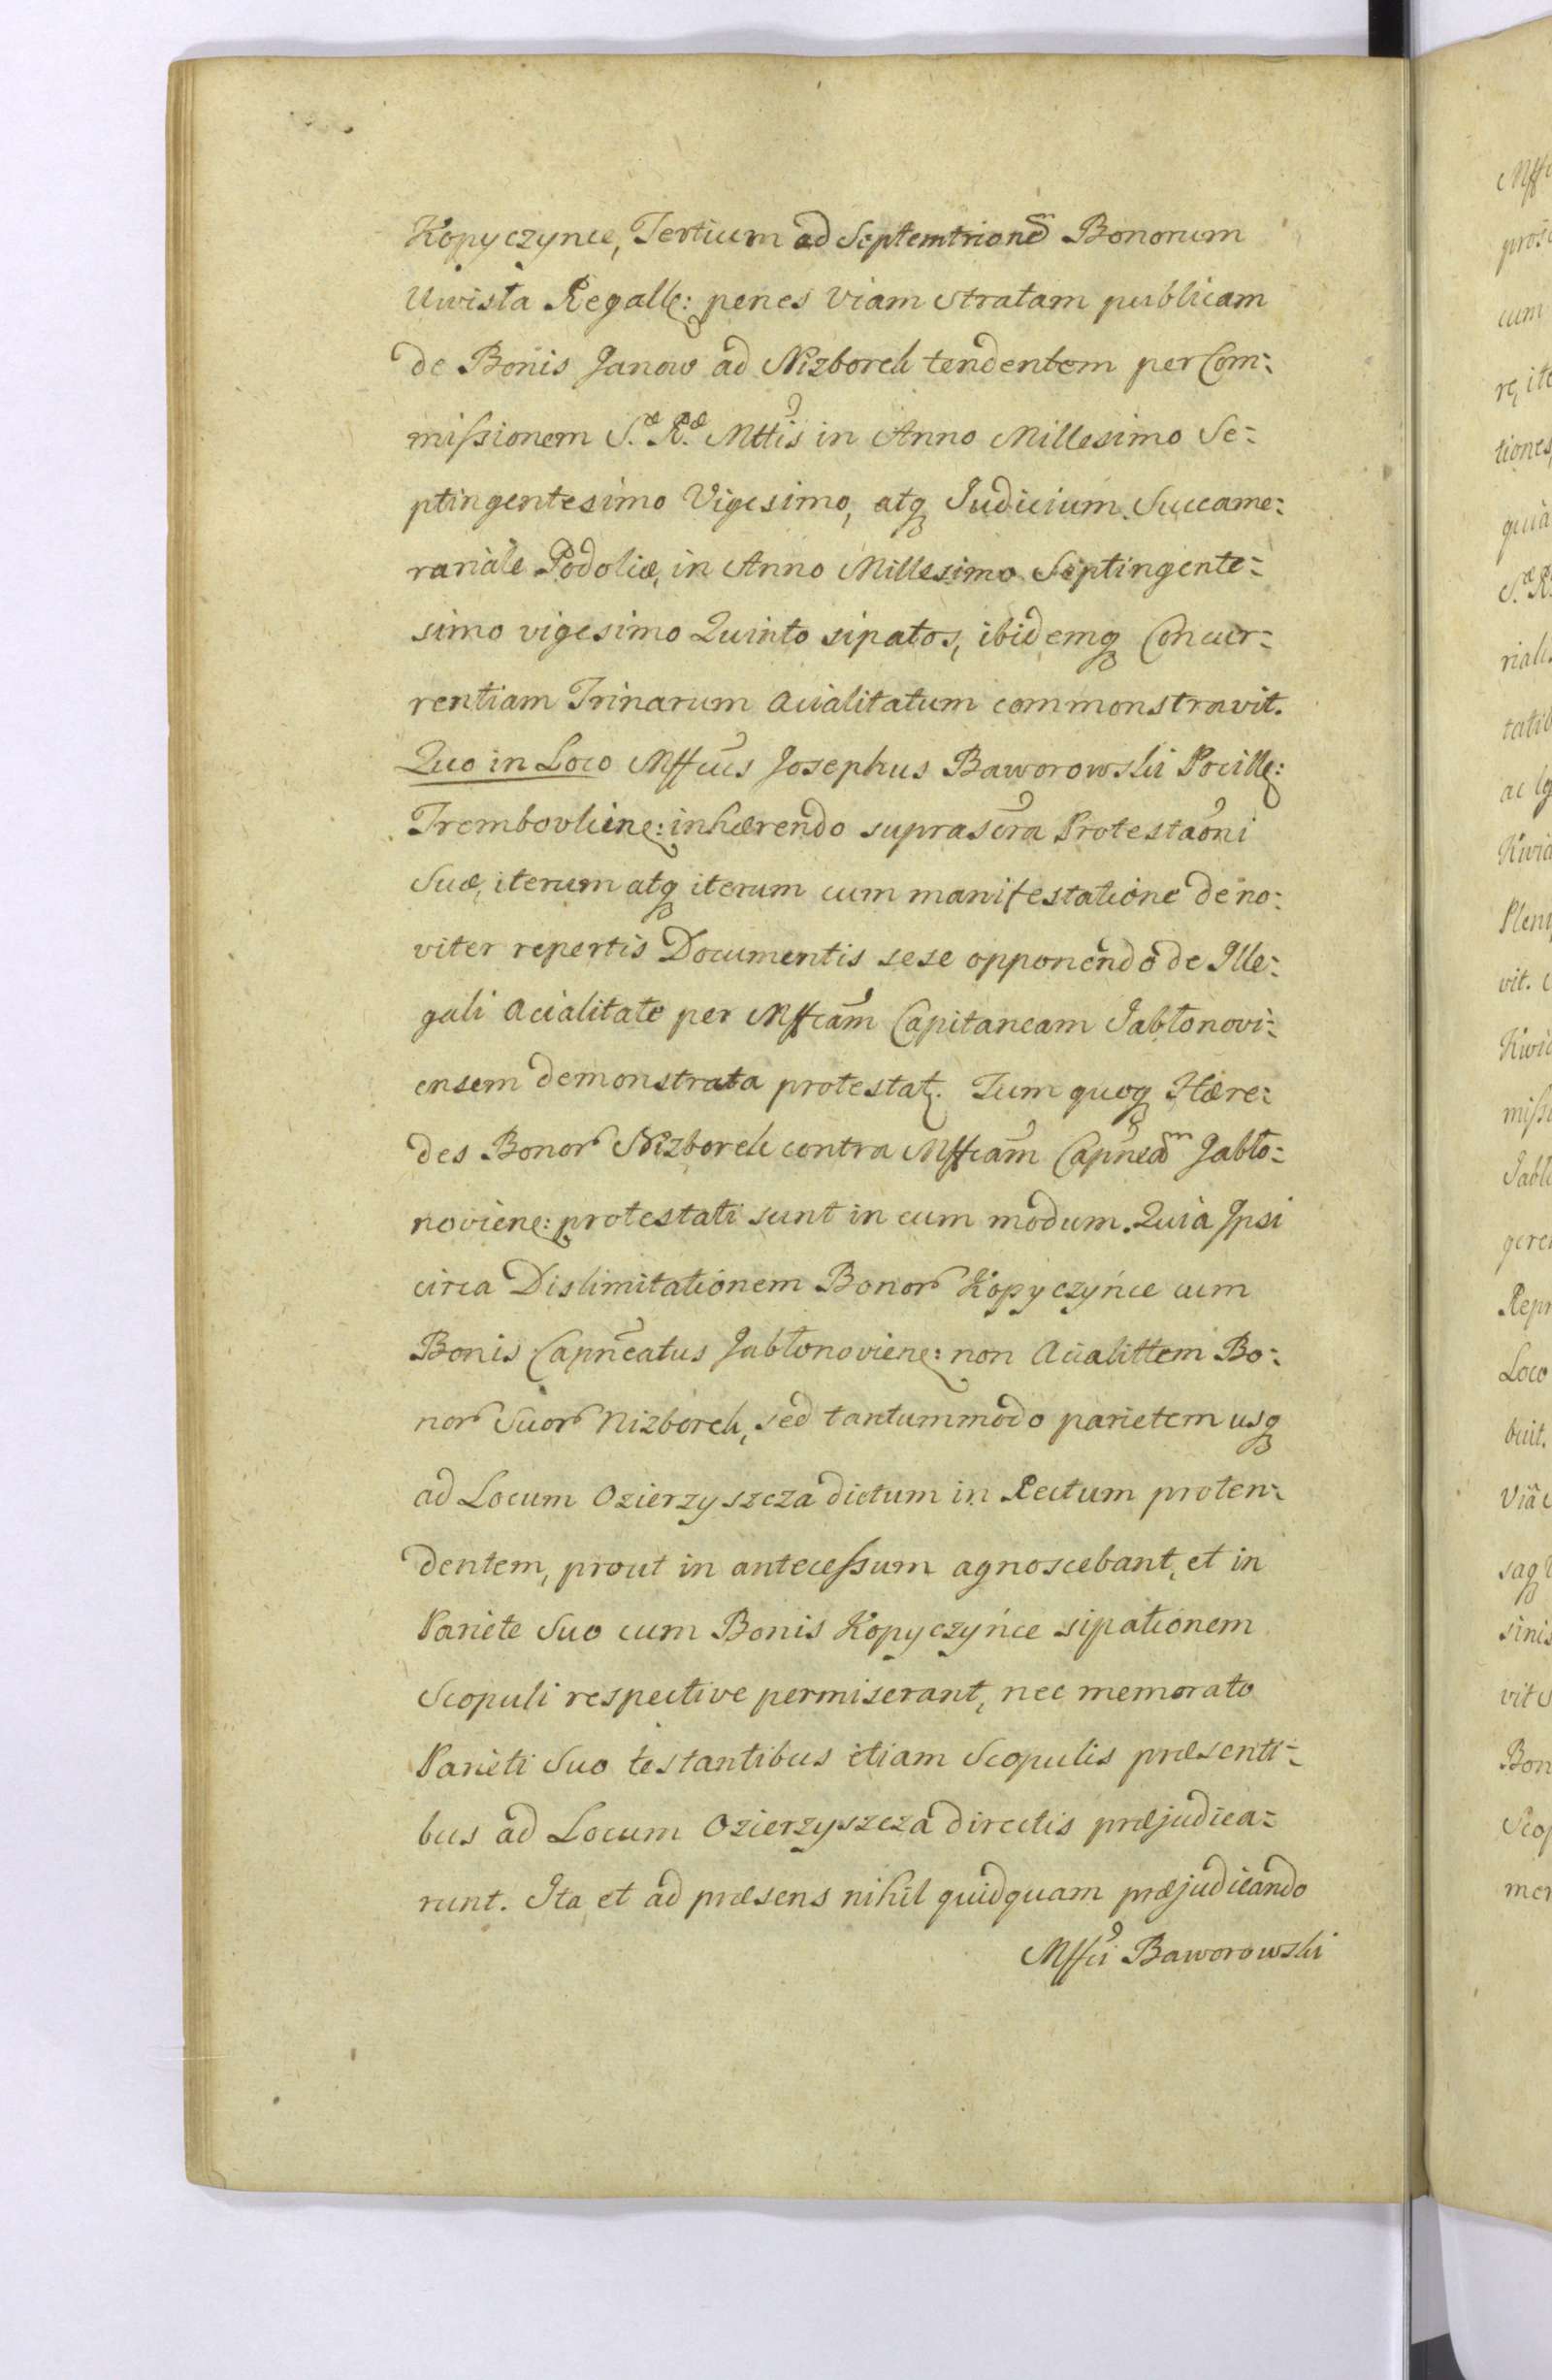 Kopyczynce, Tertium ad Septemtrionem Bonorum
Uwista Regall: penes Viam Stratam publicam
de Bonis Janow ad Nizboreh tendentem per Com:
missionem S.æ R.æ Mttis in Anno Millesimo Se:
ptingentesimo Vigesimo, atq Judicium Succame:
rariale Podoliæ, in Anno Millesimo Septingente:
simo vigesimo Quinto sipatos, ibidemq Concur:
rentiam Trinarum Acialitatum commonstravit.
Quo in Loco Mffcus Josephus Baworowski Pocill:
Trembovlien: inhærendo suprascra Protestaoni
Suæ, iterum atq iterum cum manifestatione de no:
viter repertis Documentis sese opponendo de Ille:
gali Acialitate per Mffcam Capitaneam Jabłonovi:
ensem demonstrata protestat. Tum quoq Hære:
des Bonor Nizboreh contra Mffcam Capneam Jabło:
novien: protestati sunt in eum modum. Quia Ipsi
circa Dislimitationem Bonor Kopyczyńce cum
Bonis Capneatus Jabłonovien: non Acialittem Bo:
nor Suor Nizboreh, sed tantummodo parietem usq
ad Locum Ozierzyszcza dictum in Rectum proten:
dentem, prout in antecessum agnoscebant, et in
Pariete Suo cum Bonis Kopyczyńce sipationem
Scopuli respective permiserant, nec memorato
Parieti Suo testantibus etiam Scopulis præsenti:
bus ad Locum Ozierzyszcza directis præjudica:
runt. Ita et ad præsens nihil quidquam præjudicando
Mffci Baworowski